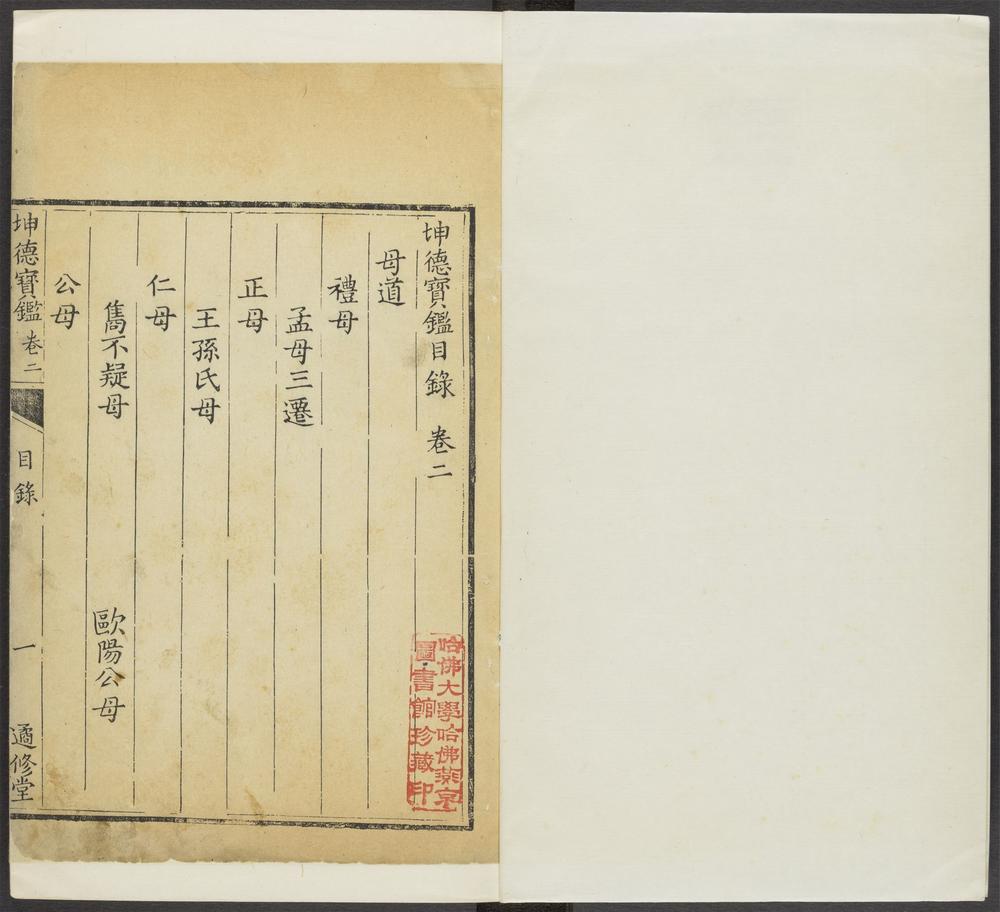 坤德寶鑑目錄 卷二
母道
禮母
孟母三遷
正母
王孫氏母
仁母
雋不疑母 歐陽公母
公母
坤德寶鑑 卷二 目錄 一 遹修堂
哈佛大學哈佛燕京
圖書館珍藏印